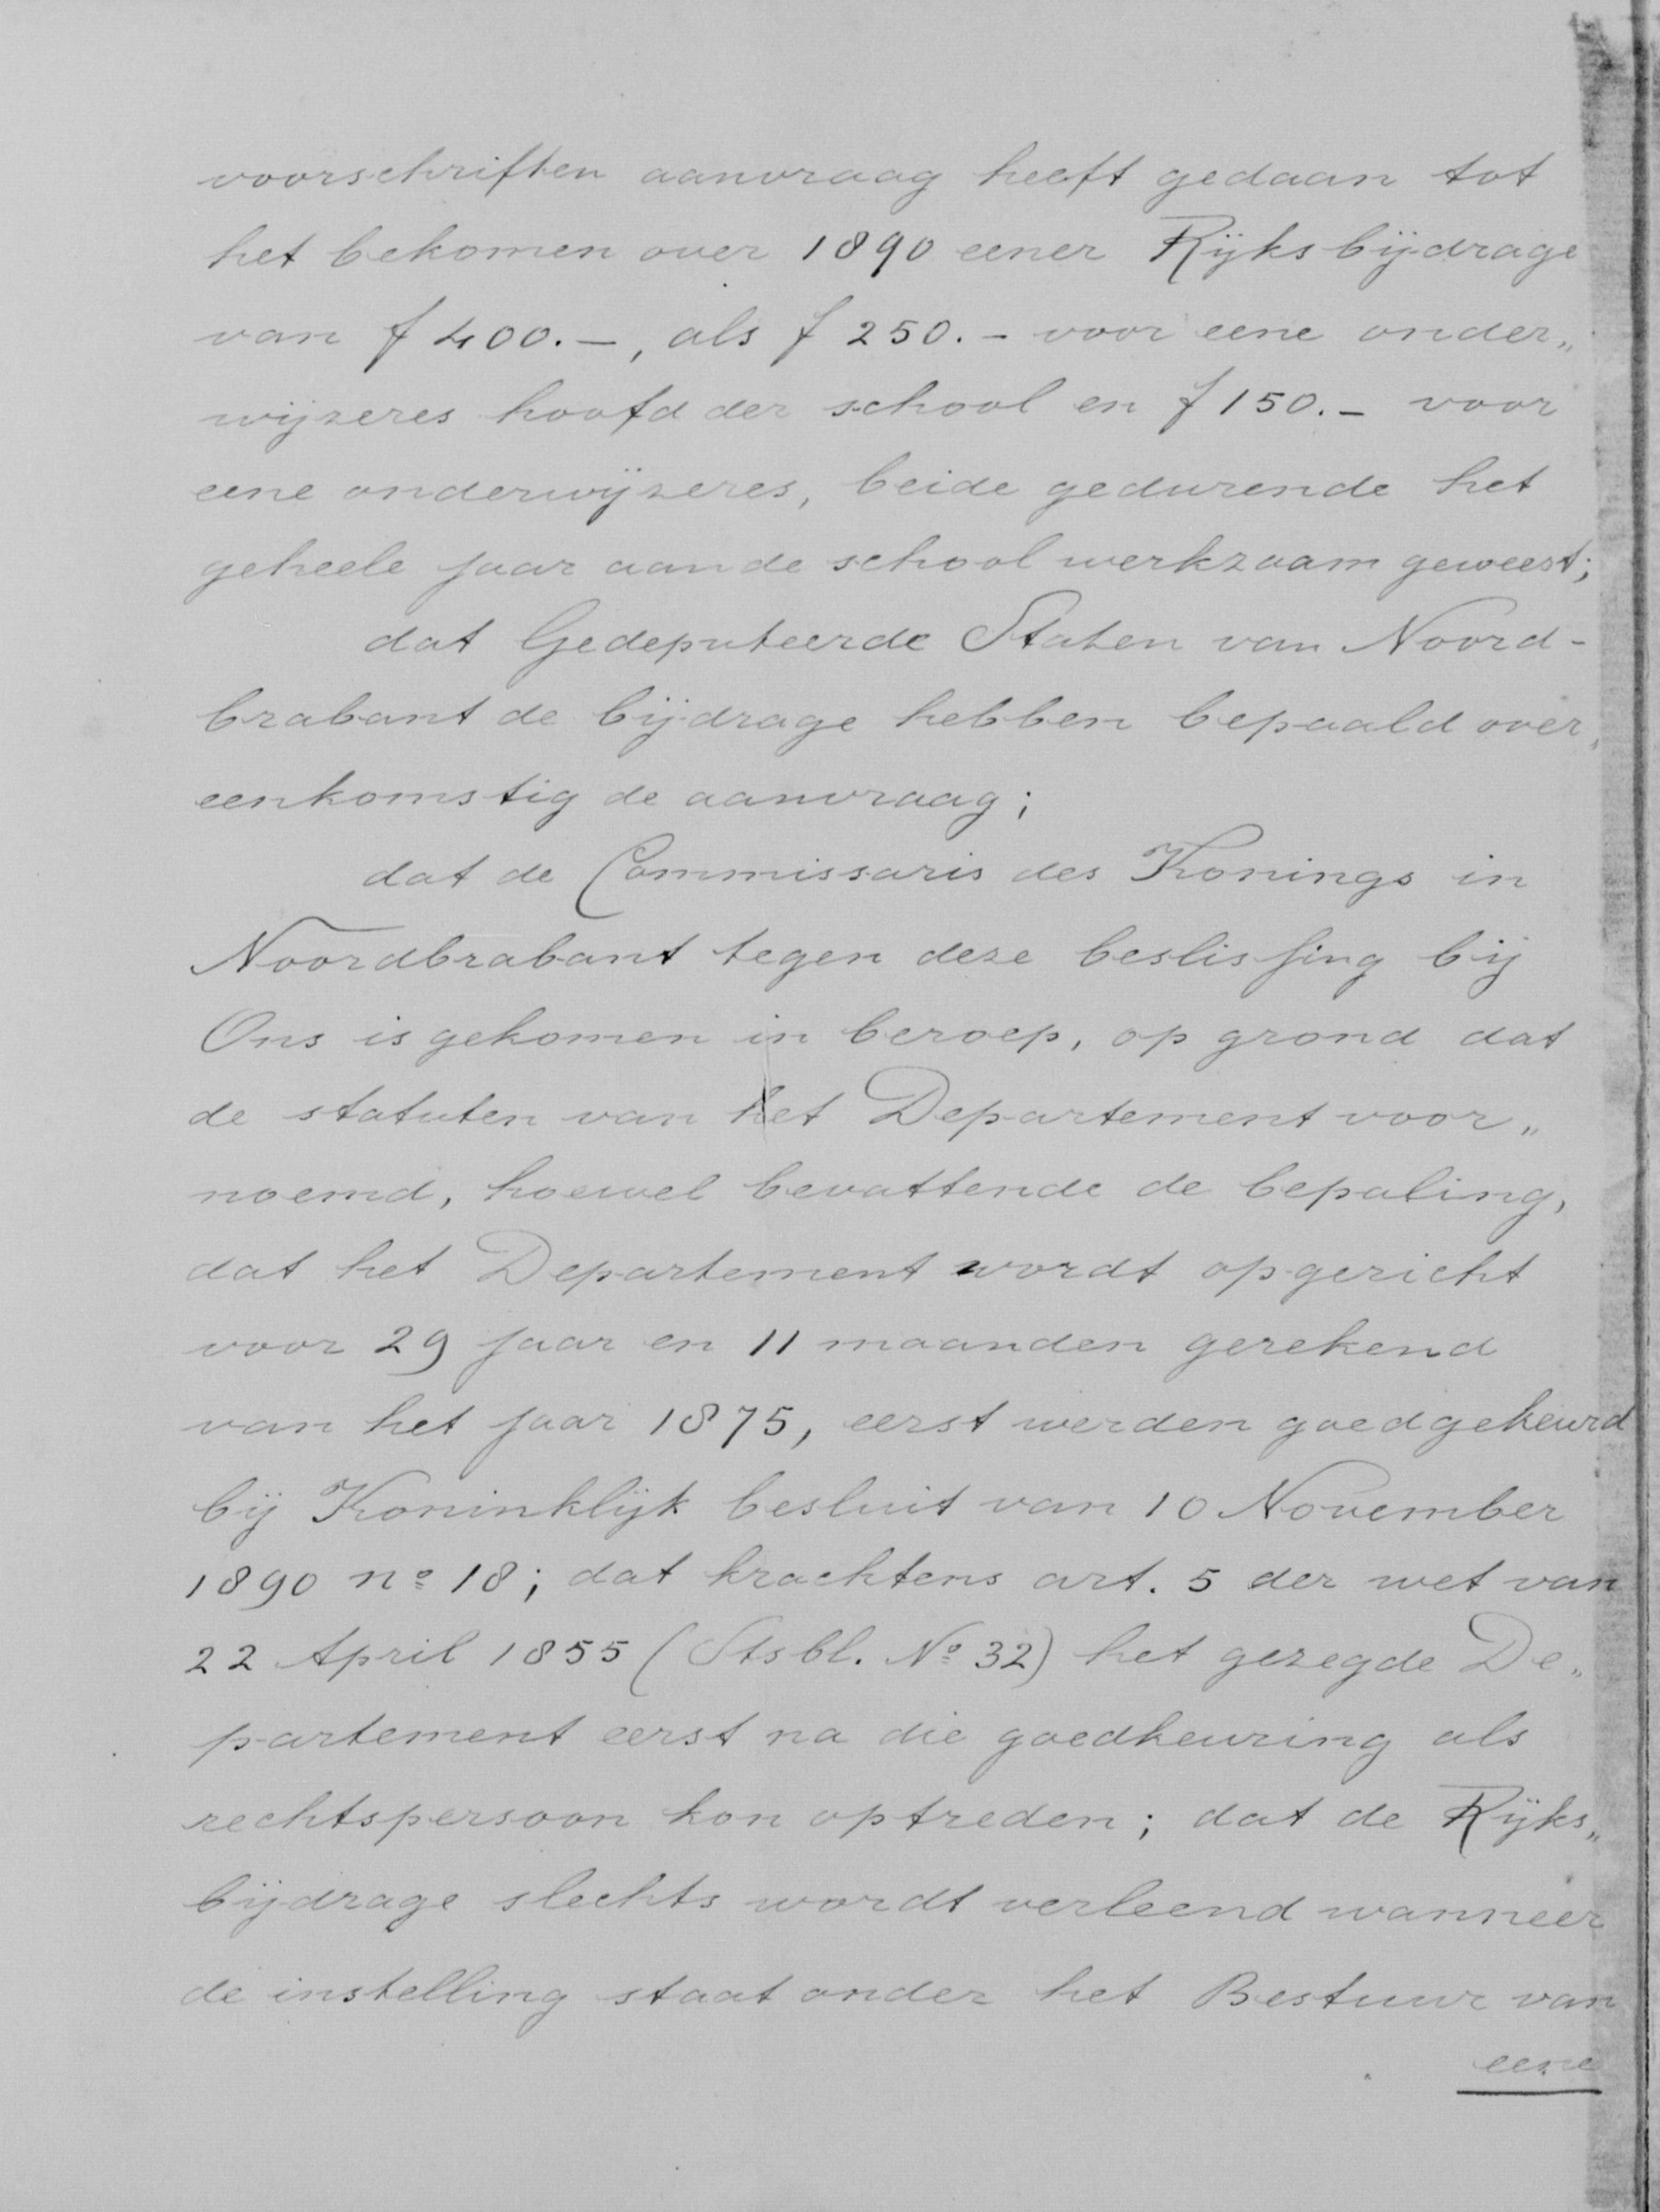 voorschriften aanvraag heeft gedaan tot
het bekomen over 1890 eener Rijksbijdrage
van f 400.—, als f 250.- voor eene onder„
wijzeres hoofd der school en f 150.- voor
eene onderwijzeres, beide gedurende het
geheele jaar aan de school werkzaam geweest;
dat Gedeputeerde Staten van Noord-
brabant de bijdrage hebben bepaald over„
eenkomstig de aanvraag;
dat de Commissaris des Konings in
Noordbrabant tegen deze beslissing bij
Ons is gekomen in beroep, op grond dat
de statuten van het Departement voor„
noemd, hoewel bevattende de bepaling,
dat het Departement wordt opgericht
voor 29 jaar en 11 maanden gerekend
van het jaar 1875, eerst werden goedgekeurd
bij Koninklijk besluit van 10 November
1890 nº 18; dat krachtens art. 5 der wet van
22 April 1855 (Stsbl. Nº 32) het gezegde De„
partement eerst na die goedkeuring als
rechtspersoon kon optreden; dat de Rijks„
bijdrage slechts wordt verleend wanneer
de instelling staat onder het Bestuur van
eene